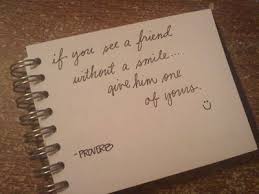 if you see a friend
without a smile....
give him one
of yours.
-PROVERB